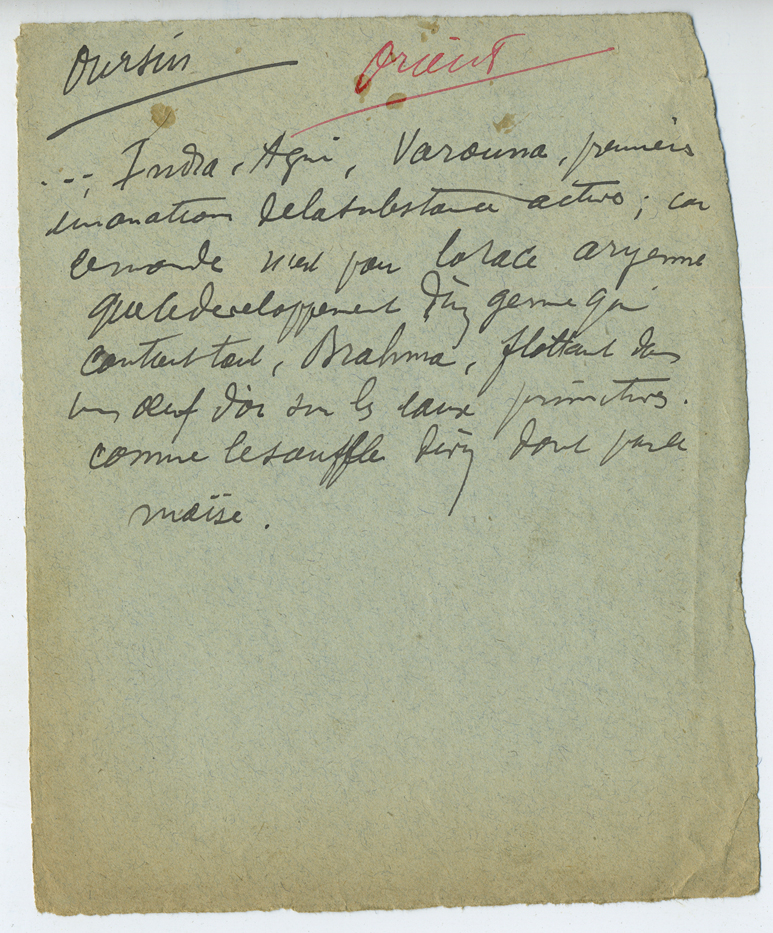 Oursin Orient
..., Indra, Agni, Varouna, premières
émanations de la substance active ; car
ce monde n'est pour la race aryenne
que le développement d'un germe qui
contient tout, Brahma, flottant dans
un œuf d'or sur les eaux primitives.
comme le souffle divin dont parle
moïse.